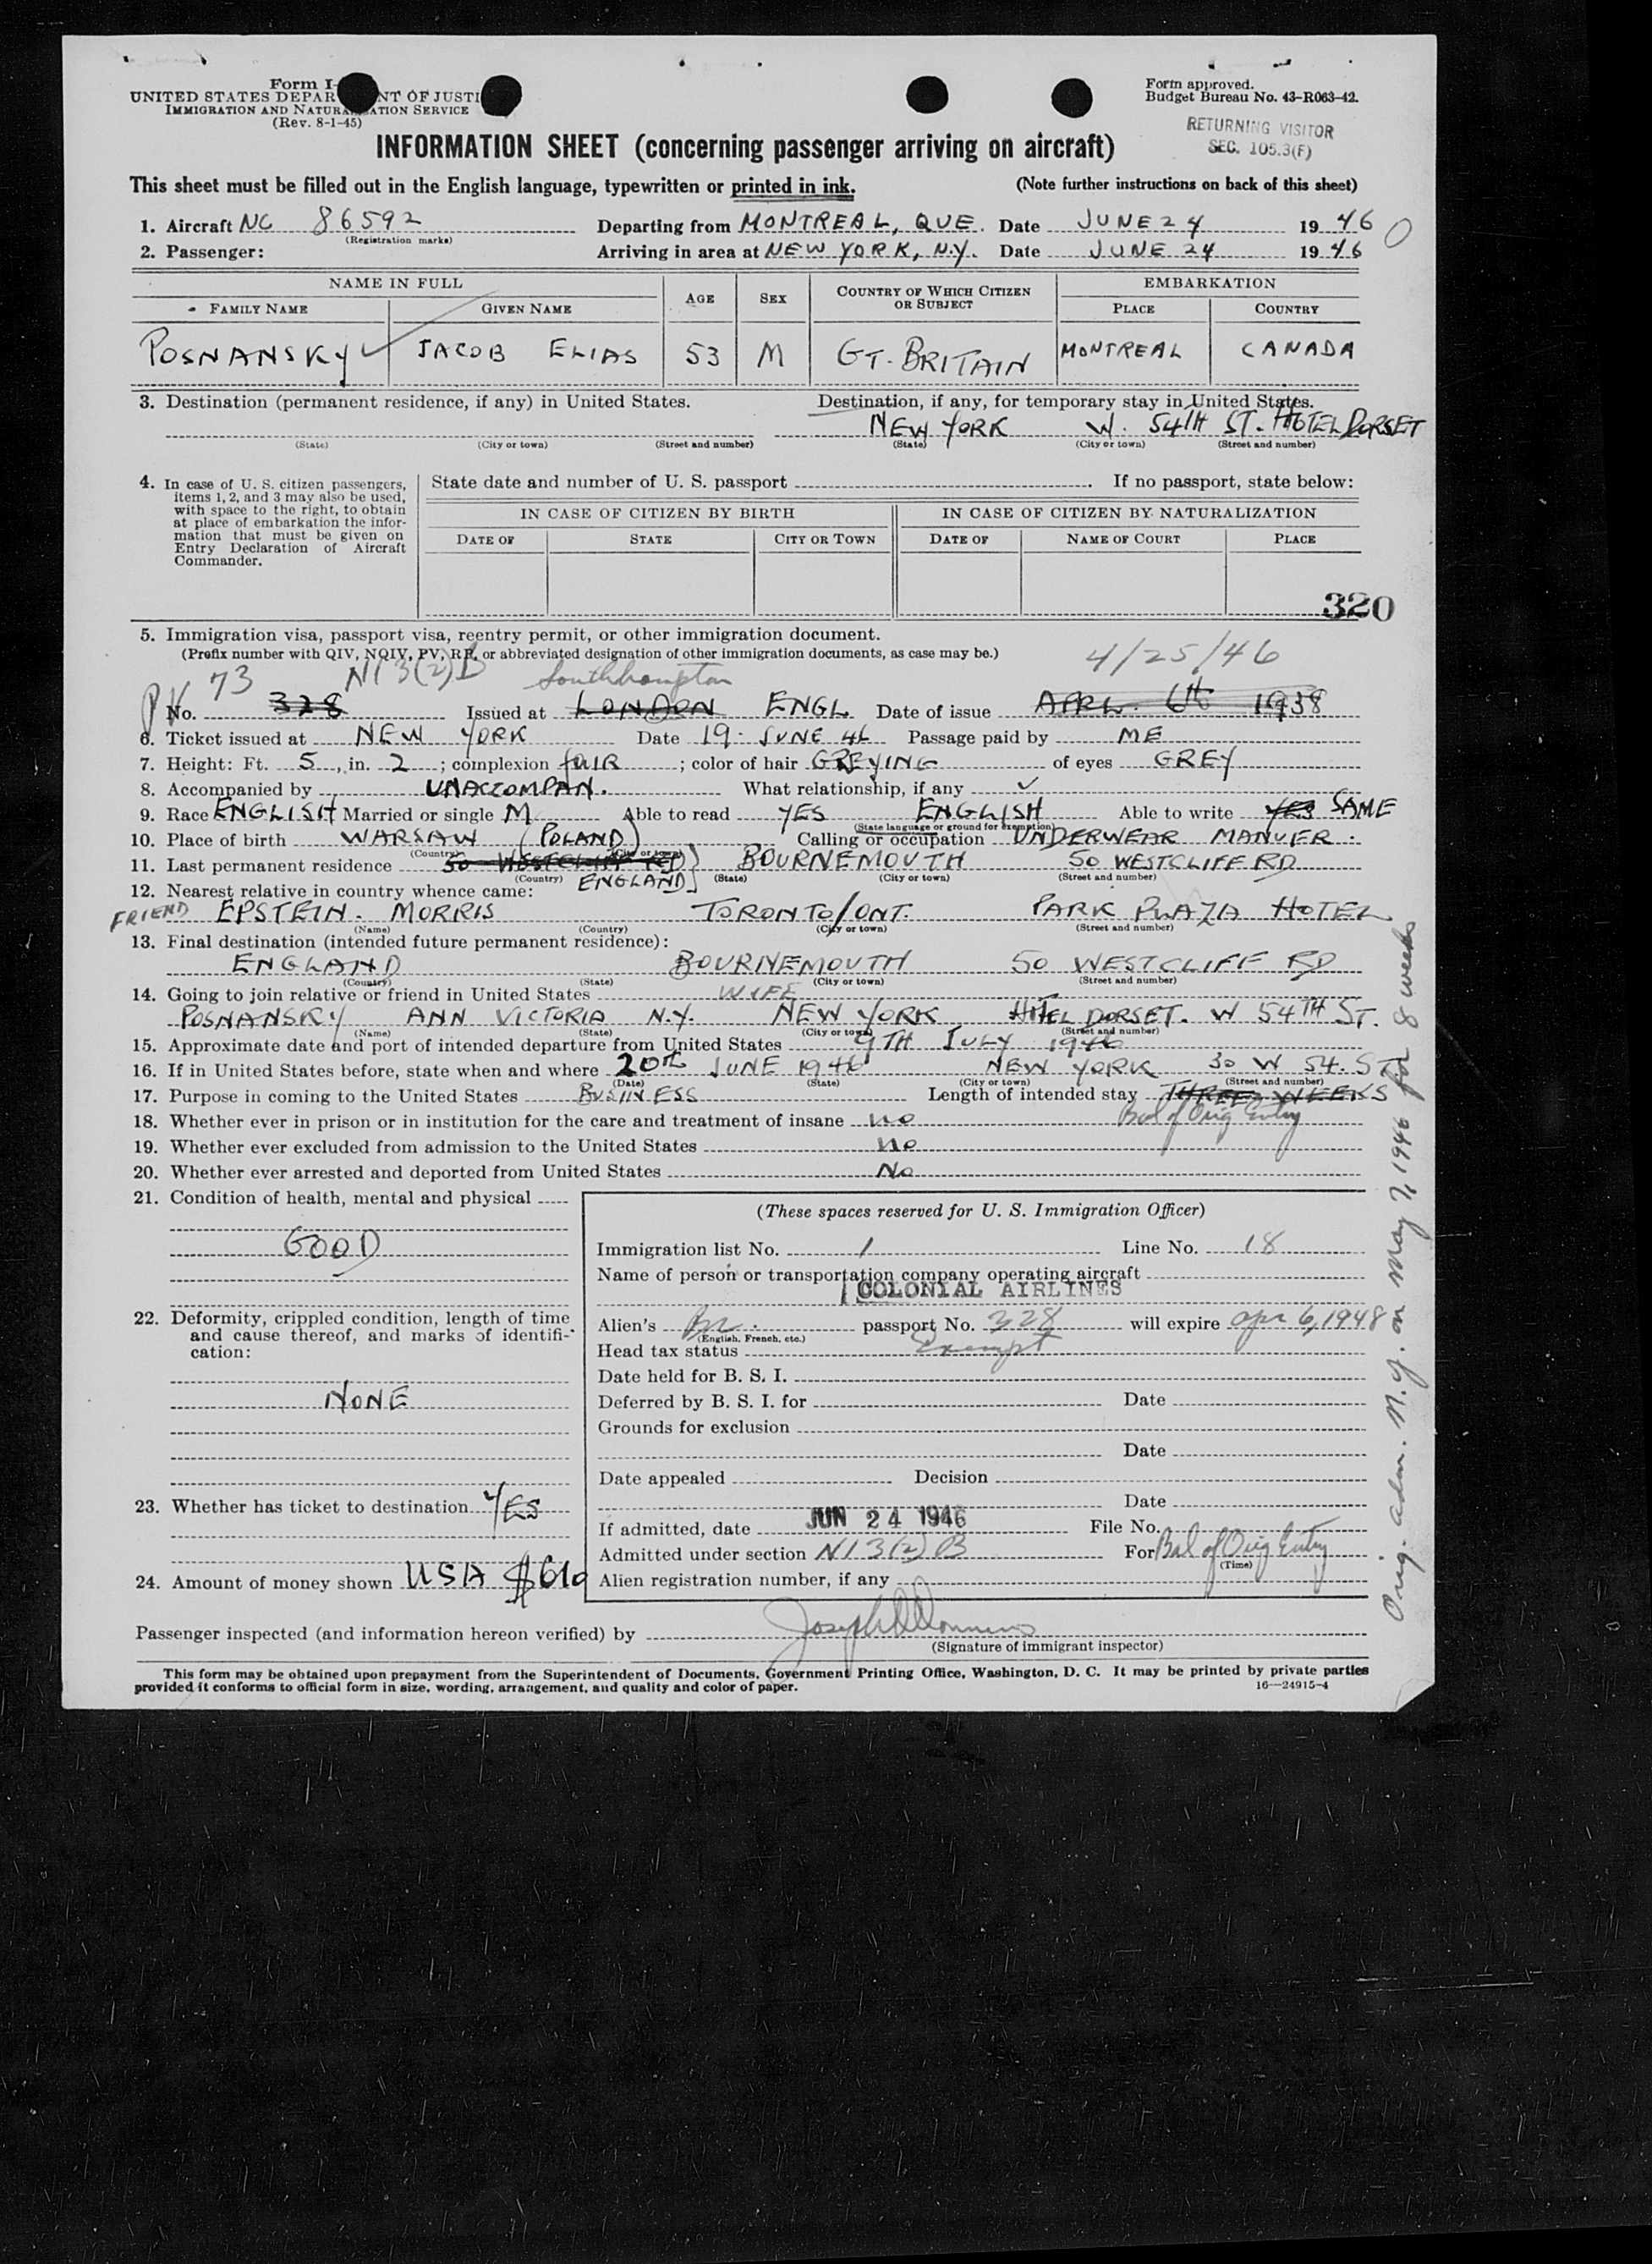 Form I-
UNITED STATES DEPAR NT OF JUSTI
IMMIGRATION AND NATURA ATION SERVICE
(Rev. 8-1-45)
Form approved.
Budget Bureau No. 43-R063-42.
RETURNING VISITOR
SEC. 105.3(F)
INFORMATION SHEET (concerning passenger arriving on aircraft)
This sheet must be filled out in the English language, typewritten or printed in ink. (Note further instructions on back of this sheet)
1. Aircraft NC 86592 Departing from MONTREAL, QUE. Date JUNE 24 1946
(Registration marks)
2. Passenger: Arriving in area at NEW YORK, N.Y. Date JUNE 24 1946
NAME IN FULL AGE SEX COUNTRY OF WHICH CITIZEN OR SUBJECT EMBARKATION
FAMILY NAME GIVEN NAME PLACE COUNTRY
POSNANSKY JACOB ELIAS 53 M GT. BRITAIN MONTREAL CANADA
3. Destination (permanent residence, if any) in United States. Destination, if any, for temporary stay in United States.
NEW YORK W. 54TH ST. HOTEL DORSET
(State) (City or town) (Street and number) (State) (City or town) (Street and number)
4. In case of U. S. citizen passengers, items 1, 2, and 3 may also be used, with space to the right, to obtain at place of embarkation the information that must be given on Entry Declaration of Aircraft Commander.
State date and number of U. S. passport . If no passport, state below:
IN CASE OF CITIZEN BY BIRTH IN CASE OF CITIZEN BY NATURALIZATION
DATE OF STATE CITY OR TOWN DATE OF NAME OF COURT PLACE
320
5. Immigration visa, passport visa, reentry permit, or other immigration document.
(Prefix number with QIV, NQIV, PV, RP, or abbreviated designation of other immigration documents, as case may be.)
PV 73 N13(2)B Southhampton 4/25/46
No. 328 Issued at LONDON ENGL. Date of issue APRL. 6th 1938
6. Ticket issued at NEW YORK Date 19 JUNE 46 Passage paid by ME
7. Height: Ft. 5, in. 2; complexion fAIR; color of hair GREYING of eyes GREY
8. Accompanied by UNACCOMPAN. What relationship, if any
9. Race ENGLISH Married or single M Able to read YES ENGLISH Able to write YES SAME
(State language or ground for exemption)
10. Place of birth WARSAW (POLAND) Calling or occupation UNDERWEAR MANUER.
(Country) (City or town)
11. Last permanent residence 50 WESTCLIFF RD ENGLAND BOURNEMOUTH 50 WESTCLIFF RD
(Country) (State) (City or town) (Street and number)
12. Nearest relative in country whence came:
FRIEND EPSTEIN. MORRIS TORONTO/ONT. PARK PLAZA HOTEL
(Name) (Country) (City or town) (Street and number)
13. Final destination (intended future permanent residence):
ENGLAND BOURNEMOUTH 50 WESTCLIFF RD
(Country) (State) (City or town) (Street and number)
14. Going to join relative or friend in United States WIFE
POSNANSKY ANN VICTORIA N.Y. NEW YORK HOTEL DORSET. W 54TH ST.
(Name) (State) (City or town) (Street and number)
15. Approximate date and port of intended departure from United States 9TH JULY 1946
16. If in United States before, state when and where 20th JUNE 1946 NEW YORK 30 W 54. ST
(Date) (State) (City or town) (Street and number)
17. Purpose in coming to the United States BUSINESS Length of intended stay THREE WEEKS
Bal of Orig Entry
18. Whether ever in prison or in institution for the care and treatment of insane no
19. Whether ever excluded from admission to the United States No
20. Whether ever arrested and deported from United States No
21. Condition of health, mental and physical
GOOD
22. Deformity, crippled condition, length of time and cause thereof, and marks of identification:
NONE
23. Whether has ticket to destination YES
24. Amount of money shown USA $610
(These spaces reserved for U. S. Immigration Officer)
Immigration list No. 1 Line No. 18
Name of person or transportation company operating aircraft
COLONIAL AIRLINES
Alien's Br. passport No. 328 will expire apr 6, 1948
(English, French, etc.)
Head tax status Exempt
Date held for B. S. I.
Deferred by B. S. I. for Date
Grounds for exclusion
Date
Date appealed Decision
Date
If admitted, date JUN 24 1946 File No.
Admitted under section N13(2)B For Bal of Orig Entry
(Time)
Alien registration number, if any
Passenger inspected (and information hereon verified) by
(Signature of immigrant inspector)
This form may be obtained upon prepayment from the Superintendent of Documents, Government Printing Office, Washington, D. C. It may be printed by private parties
provided it conforms to official form in size, wording, arrangement, and quality and color of paper. 16—24915-4
Orig. adm. N.Y. on May 7, 1946 for 8 weeks